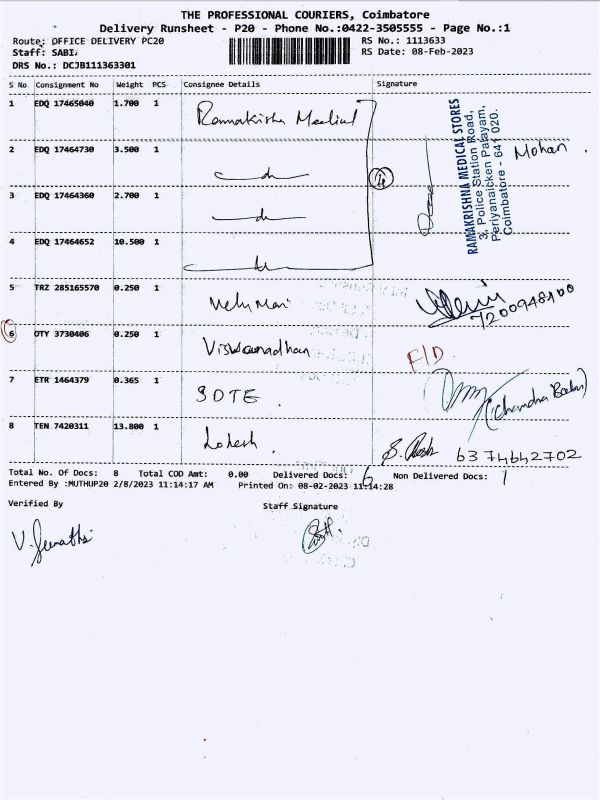 THE PROFESSIONAL COURIERS, Coimbatore
Delivery Runsheet - P20 - Phone No.:0422-3505555 - Page No.:1
Route: OFFICE DELIVERY PC20 RS No.: 1113633
Staff: SABI. RS Date: 08-Feb-2023
DRS No.: DCJB111363301
S No Consignment No Weight PCS Consignee Details Signature
1 EDQ 17465040 1.700 1 Ramakrishna Medical
RAMAKRISHNA MEDICAL STORES
3, Police Station Road,
Periyanaicken Palayam,
Coimbatore - 641 020.
Mohan
2 EDQ 17464730 3.500 1 do
4
3 EDQ 17464360 2.700 1 do
4 EDQ 17464652 10.500 1 do
5 TRZ 285165570 0.250 1 7200948100
6 OTY 3730406 0.250 1 Viswanadhan F/D
7 ETR 1464379 0.365 1 SDTE (Chandra Babu)
8 TEN 7420311 13.800 1 Lokesh 6374642702
Total No. Of Docs: 8 Total COD Amt: 0.00 Delivered Docs: 6 Non Delivered Docs: 1
Entered By :MUTHUP20 2/8/2023 11:14:17 AM Printed On: 08-02-2023 11:14:28
Verified By Staff Signature